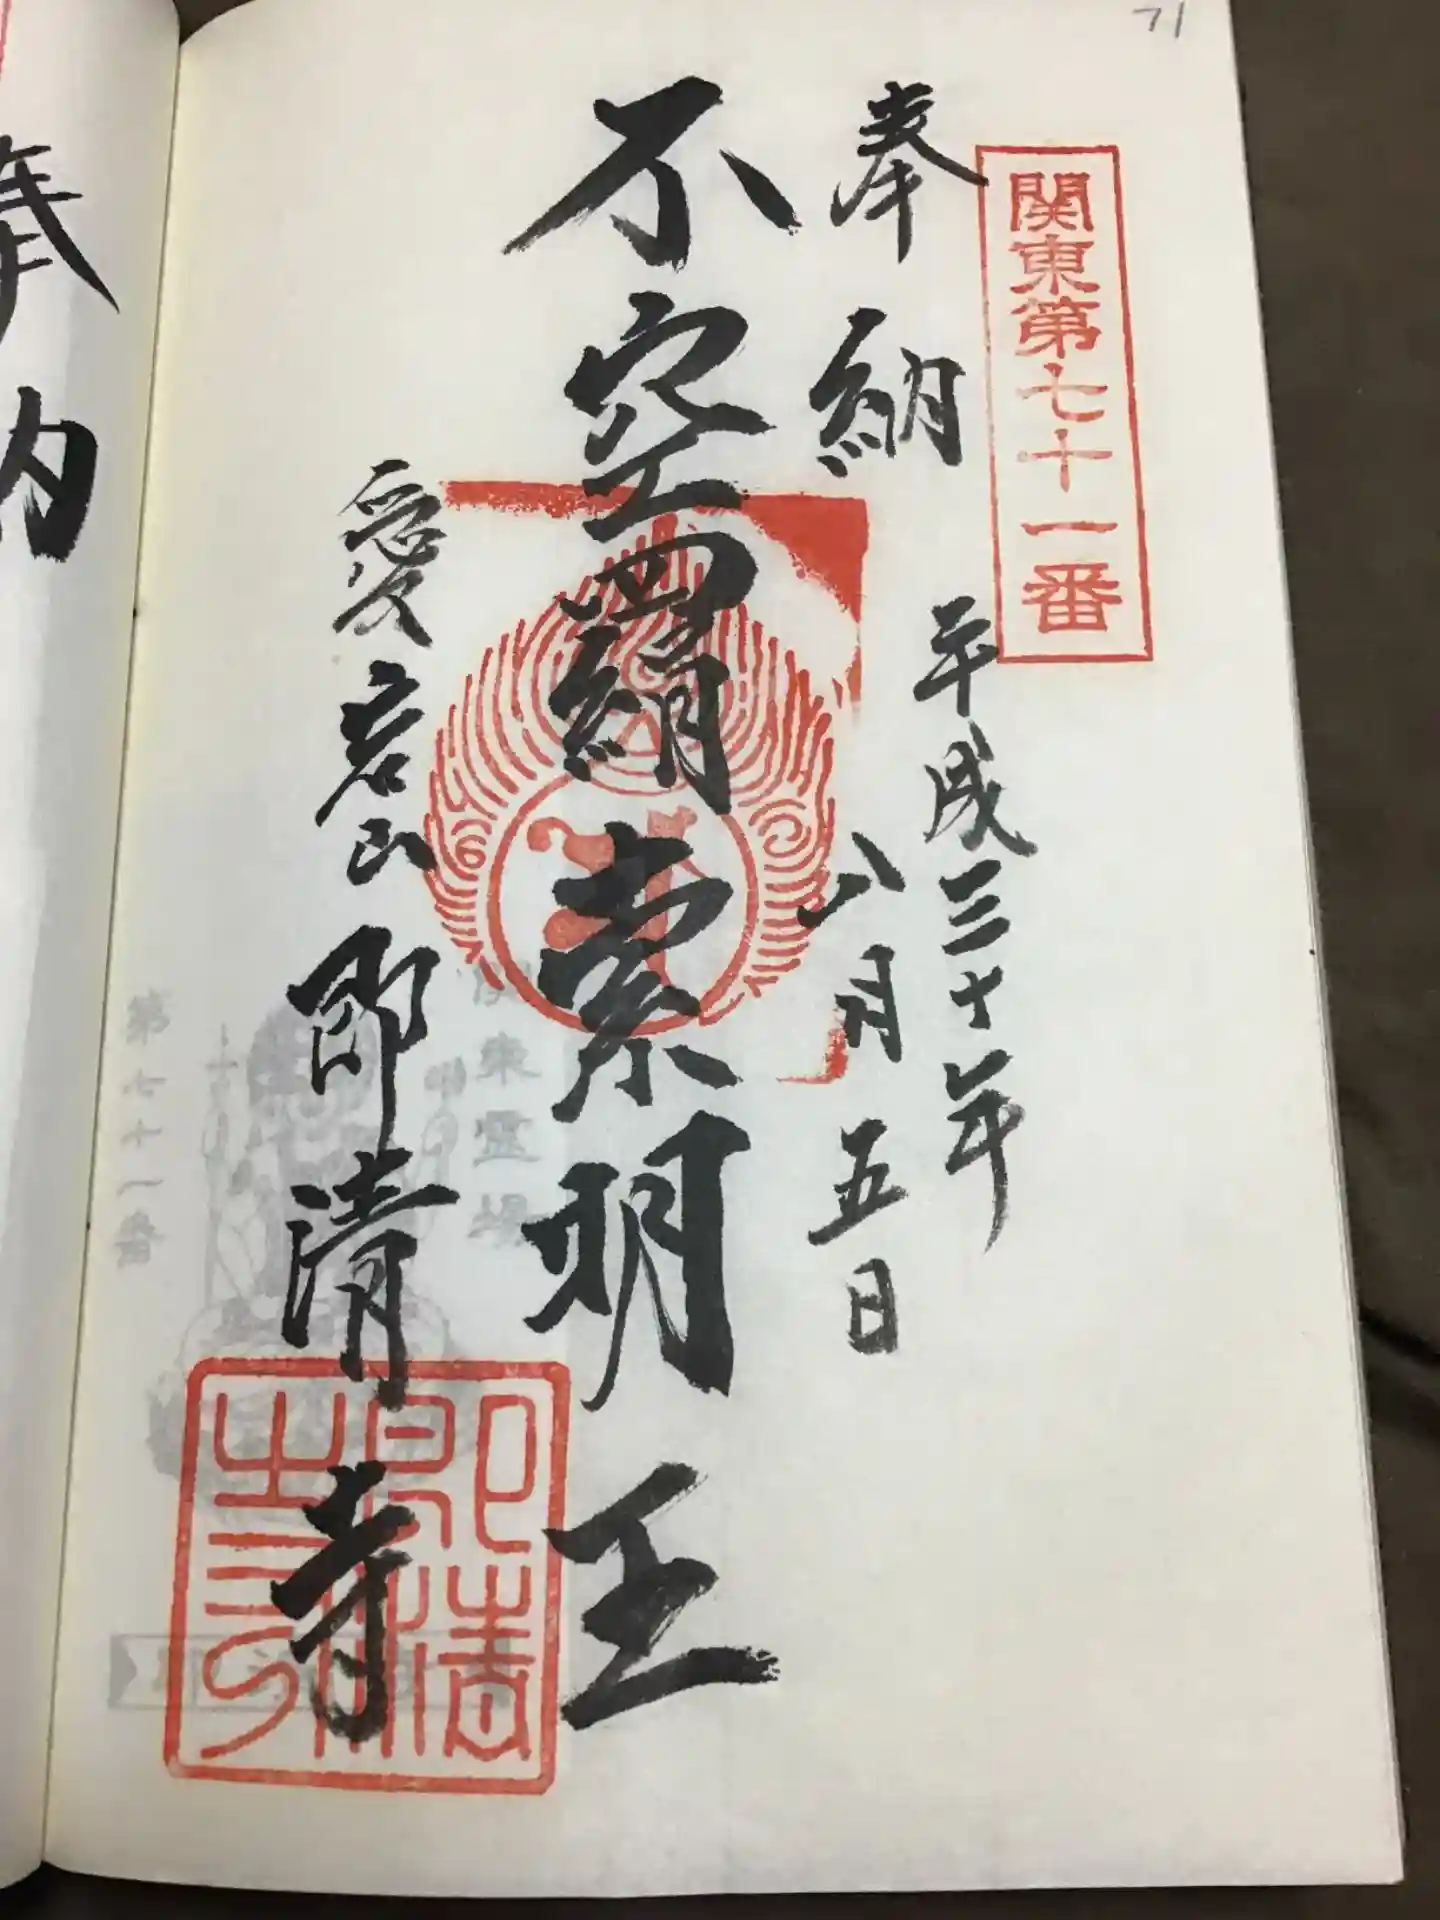 71
関東第七十一番
奉納
平成三十年
八月五日
不空羂索明王
愛宕山
即清寺
関東霊場
第七十一番
奉納